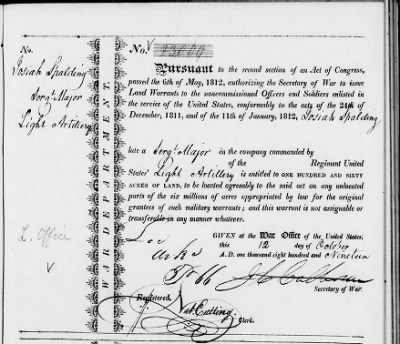 No.
Josiah Spalding
Sergt. Major
Light Artillery
L. Office
V
WAR DEPARTMENT.
No.
Pursuant to the second section of an Act of Congress,
passed the 6th of May, 1812, authorizing the Secretary of War to issue
Land Warrants to the noncommissioned Officers and Soldiers enlisted in
the service of the United States, conformably to the acts of the 24th of
December, 1811, and of the 11th of January, 1812, Josiah Spalding
late a Sergt. Major in the company commanded by
of the Regiment United
States' Light Artillery is entitled to ONE HUNDRED AND SIXTY
ACRES OF LAND, to be located agreeably to the said act on any unlocated
parts of the six millions of acres appropriated by law for the original
grantees of such military warrants; and this warrant is not assignable or
transferable in any manner whatever.
GIVEN at the War Office of the United States,
this 12 day of October
A. D. one thousand eight hundred and Nineteen
J C Calhoun
Secretary of War.
Registered,
Nat. Cutting,
Clerk.